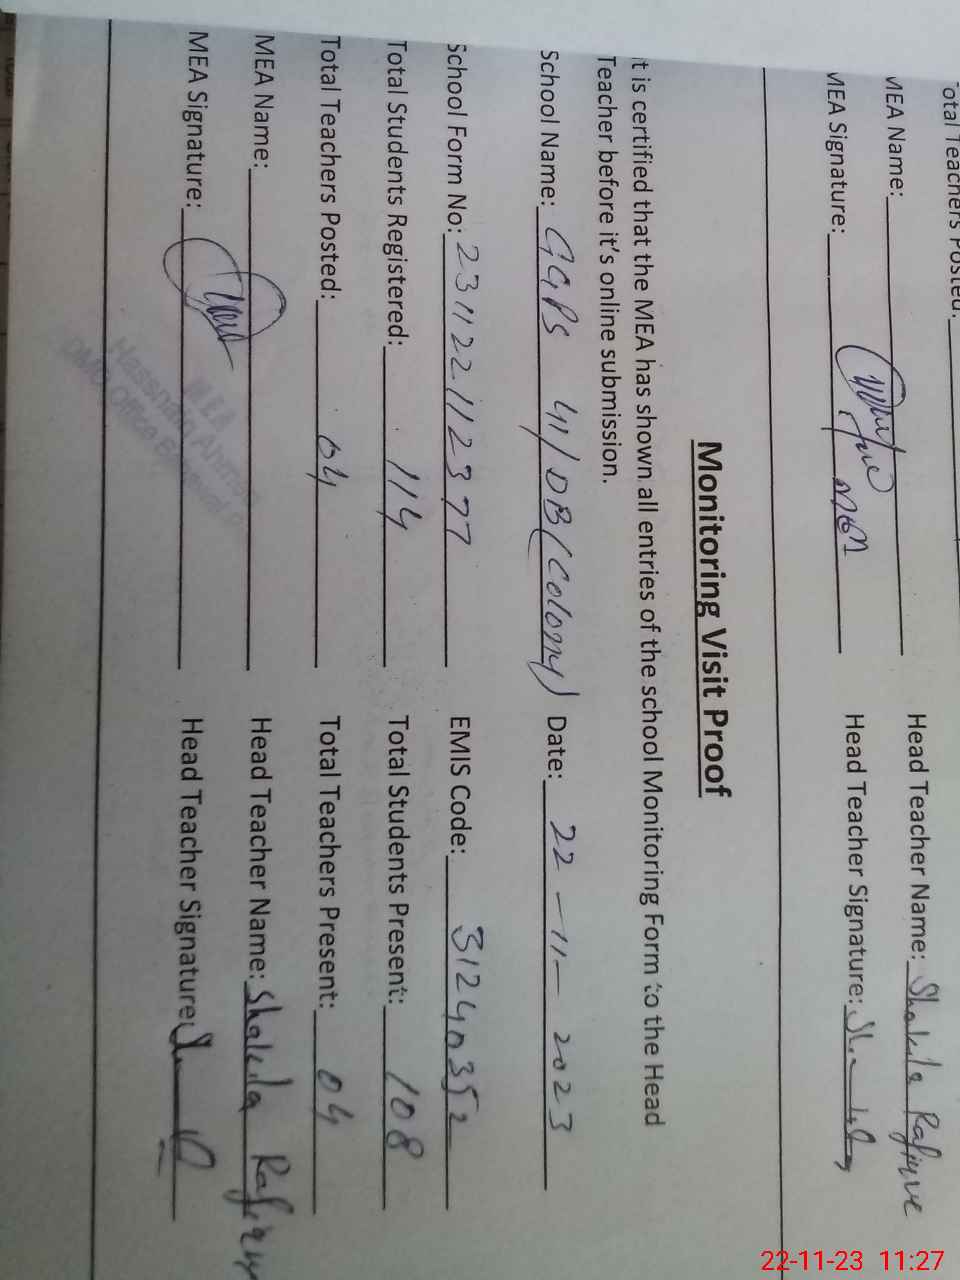 Total Teachers Posted:
MEA Name: Head Teacher Name: Shakila Rafique
MEA Signature: MEA Head Teacher Signature:
Monitoring Visit Proof
It is certified that the MEA has shown all entries of the school Monitoring Form to the Head
Teacher before it's online submission.
School Name: GGPS 411/DB (Colony) Date: 22-11-2023
School Form No: 231122112377 EMIS Code: 31240352
Total Students Registered: 114 Total Students Present: 108
Total Teachers Posted: 04 Total Teachers Present: 04
MEA Name: Head Teacher Name: Shakila Rafique
MEA Signature: Head Teacher Signature:
MEA
Hassnain Ahmed
DMO Office
22-11-23 11:27